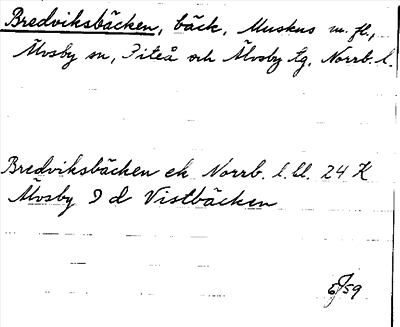 Bredviksbäcken, bäck, Muskus m. fl.,
Älvsby sn, Piteå och Älvsby tg, Norrb. l.
Bredviksbäcken ek. Norrb. l. bl. 24 K
Älvsby 9 d Vistbäcken
/59